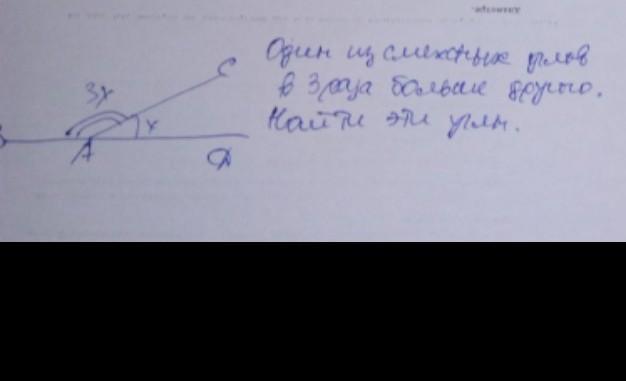 Один из смежных углов
в 3 раза больше другого.
Найти эти углы.
C
3x
x
A
D